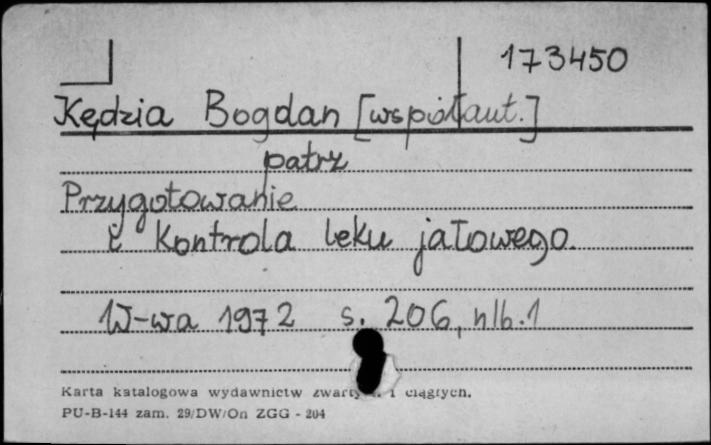 173450
Kędzia Bogdan [współaut.]
patrz
Przygotowanie
i kontrola leku jałowego.
W-wa 1972 s. 206, nlb. 1
Karta katalogowa wydawnictw i ciągłych.
PU-B-144 zam. 29/DW/On ZGG - 204